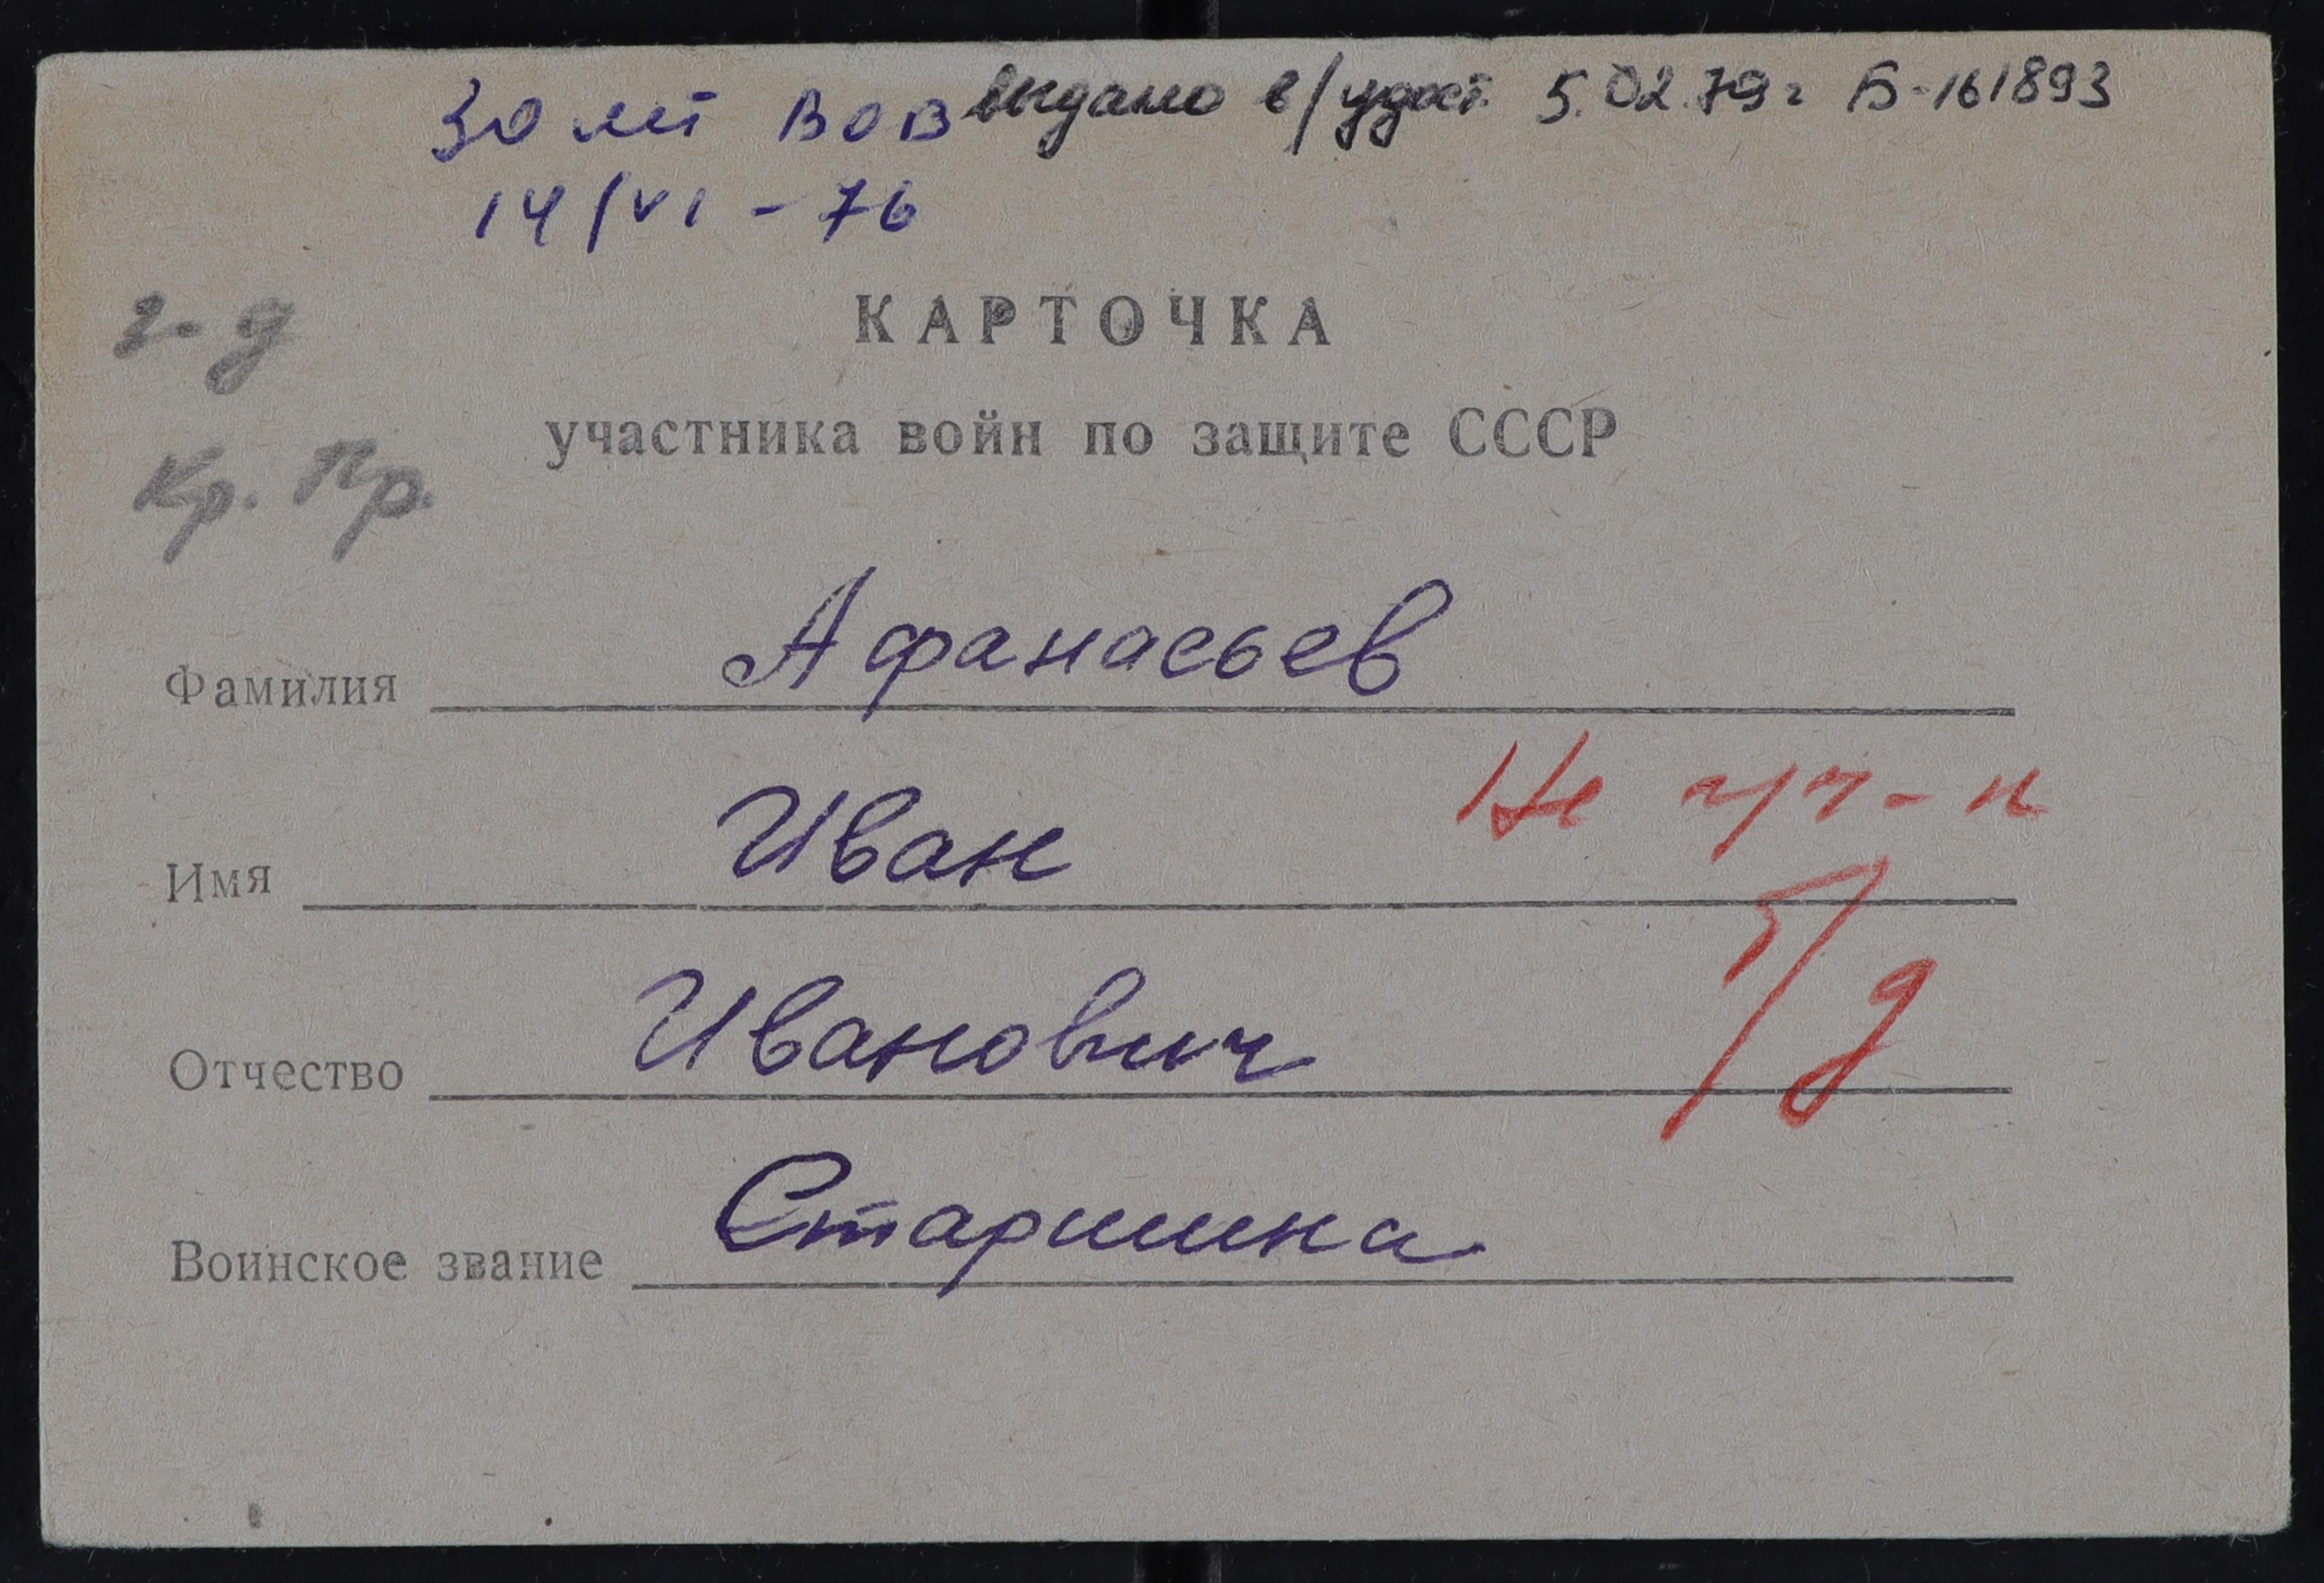 30 лет ВОВ выдано в/удост. 5.02.79 г Б-161893
14/VI - 76
КАРТОЧКА
г-д
участника войн по защите СССР
Кр. Пр.
Фамилия Афанасьев
Не уч-к
Имя Иван
Б/д
Отчество Иванович
Воинское звание Старшина